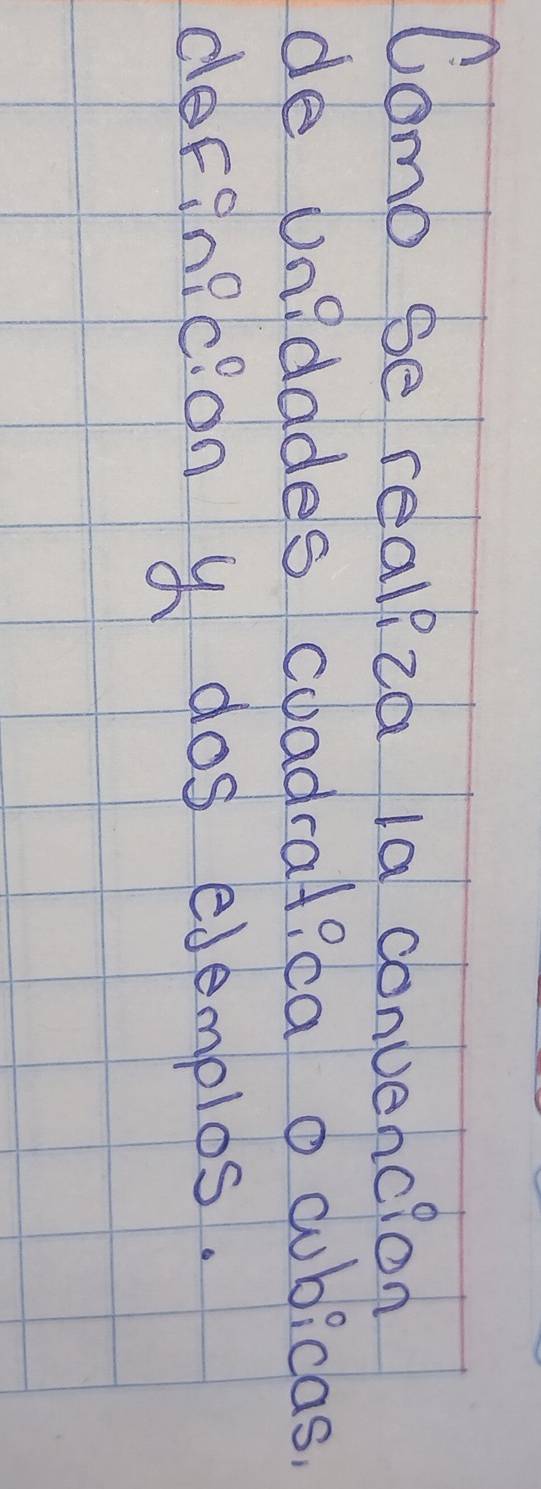 Como se realiza la convencion
de unidades cuadratica o cubicas,
definicion y dos ejemplos.